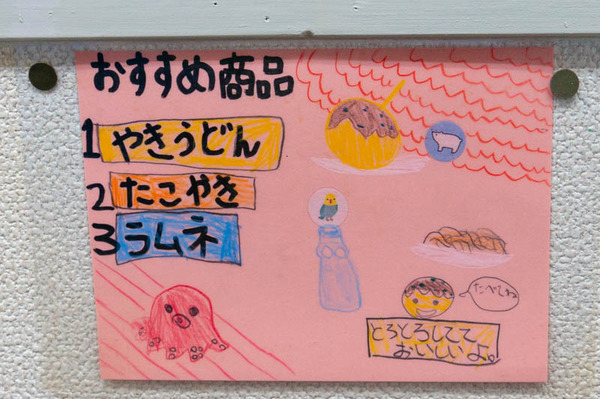 おすすめ商品
1 やきうどん
2 たこやき
3 ラムネ
たべてね
とろとろしてて
おいしいよ。